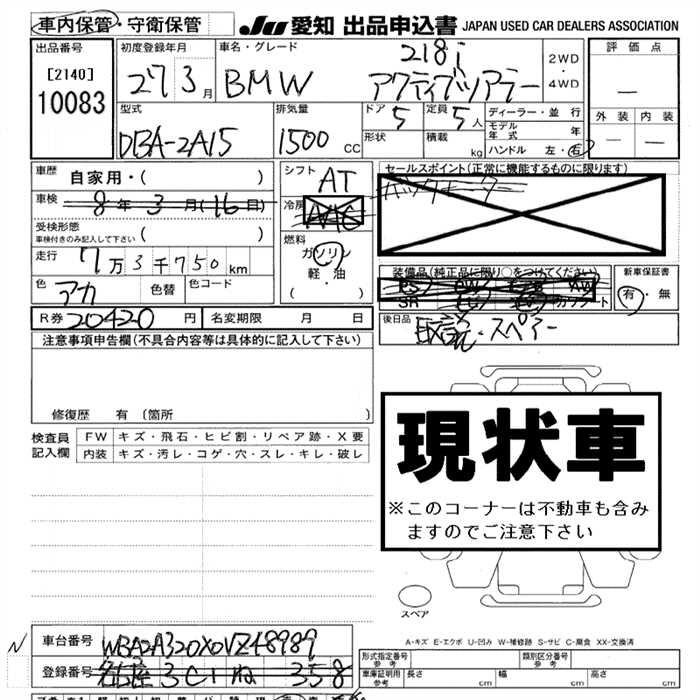 車内保管・守衛保管 JU 愛知 出品申込書 JAPAN USED CAR DEALERS ASSOCIATION
出品番号 初度登録年月 車名・グレード 評価点
[2140] 10083 27 3月 BMW 218i アクティブツアラー 2WD・4WD —
型式 排気量 ドア 5 定員 5人 ディーラー・並行 外装 内装
DBA-2A15 1500 CC 形状 積載 kg モデル年式 年 — —
ハンドル 左・右
車歴 自家用・( ) シフト AT セールスポイント(正常に機能するものに限ります)
車検 8年3月(16日) 冷房 バックモーター
受検形態 車検付きのみ記入して下さい ( ) 燃料 ガソリン
走行 7万3千750km 軽・油 装備品(純正品に限り○をつけてください) 新車保証書
色 アカ 色替 色コード (・) PS PW AW 有・無
SR カワシート
R券 20420円 名変期限 月 日 後日品 取説・スペアー
注意事項申告欄(不具合内容等は具体的に記入して下さい)
修復歴 有〔箇所 〕
現状車
※このコーナーは不動車も含み
ますのでご注意下さい
検査員記入欄 FW キズ・飛石・ヒビ割・リペア跡・X要
内装 キズ・汚レ・コゲ・穴・スレ・キレ・破レ
スペア
A-キズ E-エクボ U-凹み W-補修跡 S-サビ C-腐食 XX-交換済
N 車台番号 WBA2A320X0VZ48989
登録番号 名古屋 301 ね 358
形式指定番号 参考 類別区分番号 参考
車庫証明用 参考 長さ cm 幅 cm 高さ cm